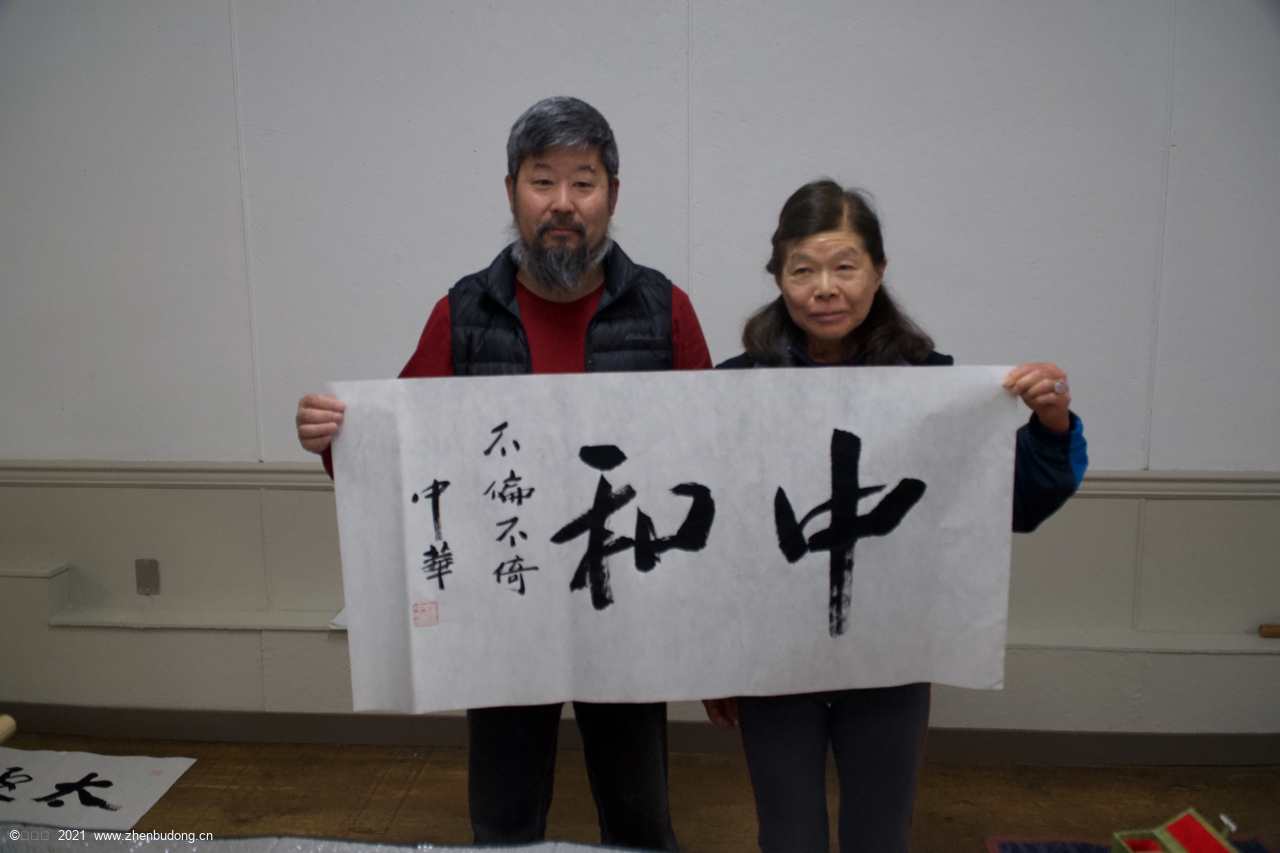 中和
不偏不倚
中華
太極
©□□□ 2021 www.zhenbudong.cn